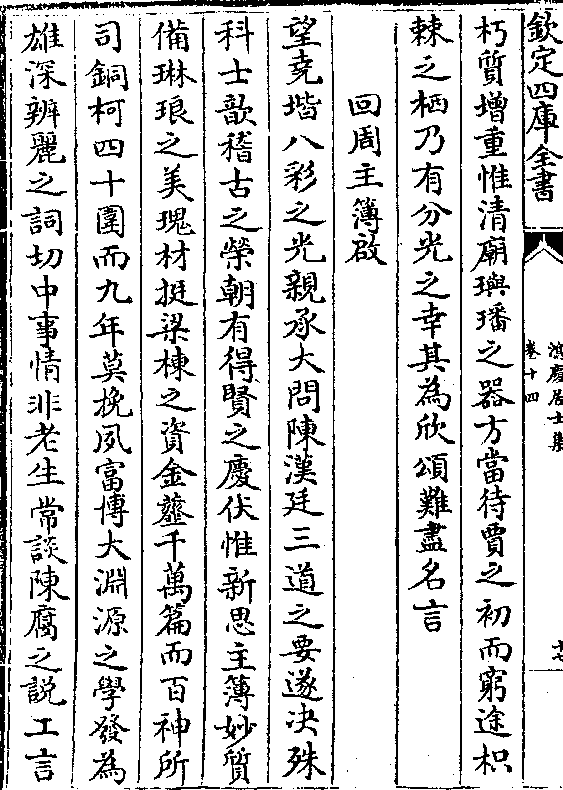 欽定四庫全書
鴻慶居士集
卷十四
十七
朽質增重惟清廟璵璠之器方當待賈之初而窮途枳
棘之栖乃有分光之幸其為欣頌難盡名言
回周主簿啟
望堯堦八彩之光親承大問陳漢廷三道之要遂決殊
科士歆稽古之榮朝有得賢之慶伏惟新恩主簿妙質
備琳琅之美瑰材挺梁棟之資金虀千萬篇而百神所
司銅柯四十圍而九年莫挽夙富博大淵源之學發為
雄深辨麗之詞切中事情非老生常談陳腐之説工言